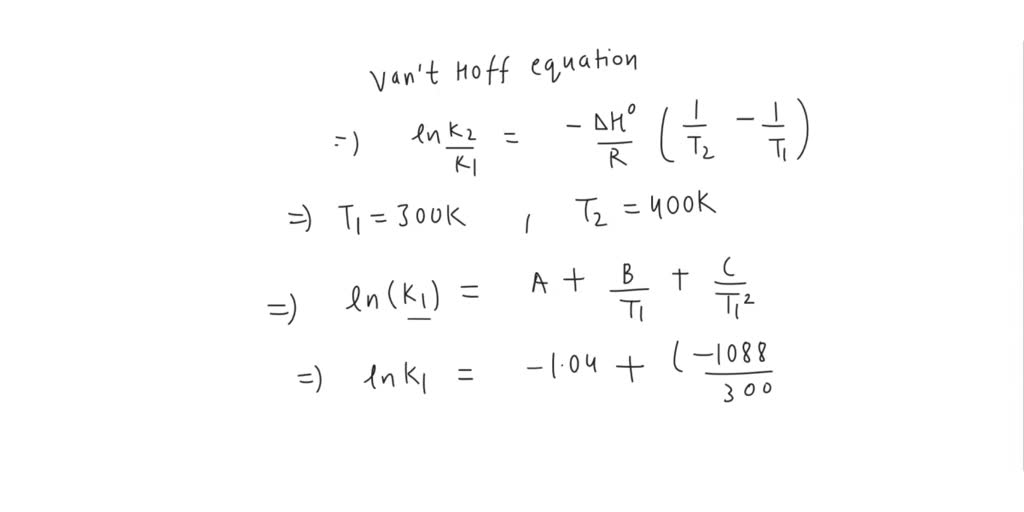 Van't Hoff equation
=) ln K2/K1 = - ΔH⁰/R ( 1/T2 - 1/T1 )
=) T1 = 300K , T2 = 400K
=) ln(K1) = A + B/T1 + C/T1²
=) ln K1 = -1.04 + ( -1088/300